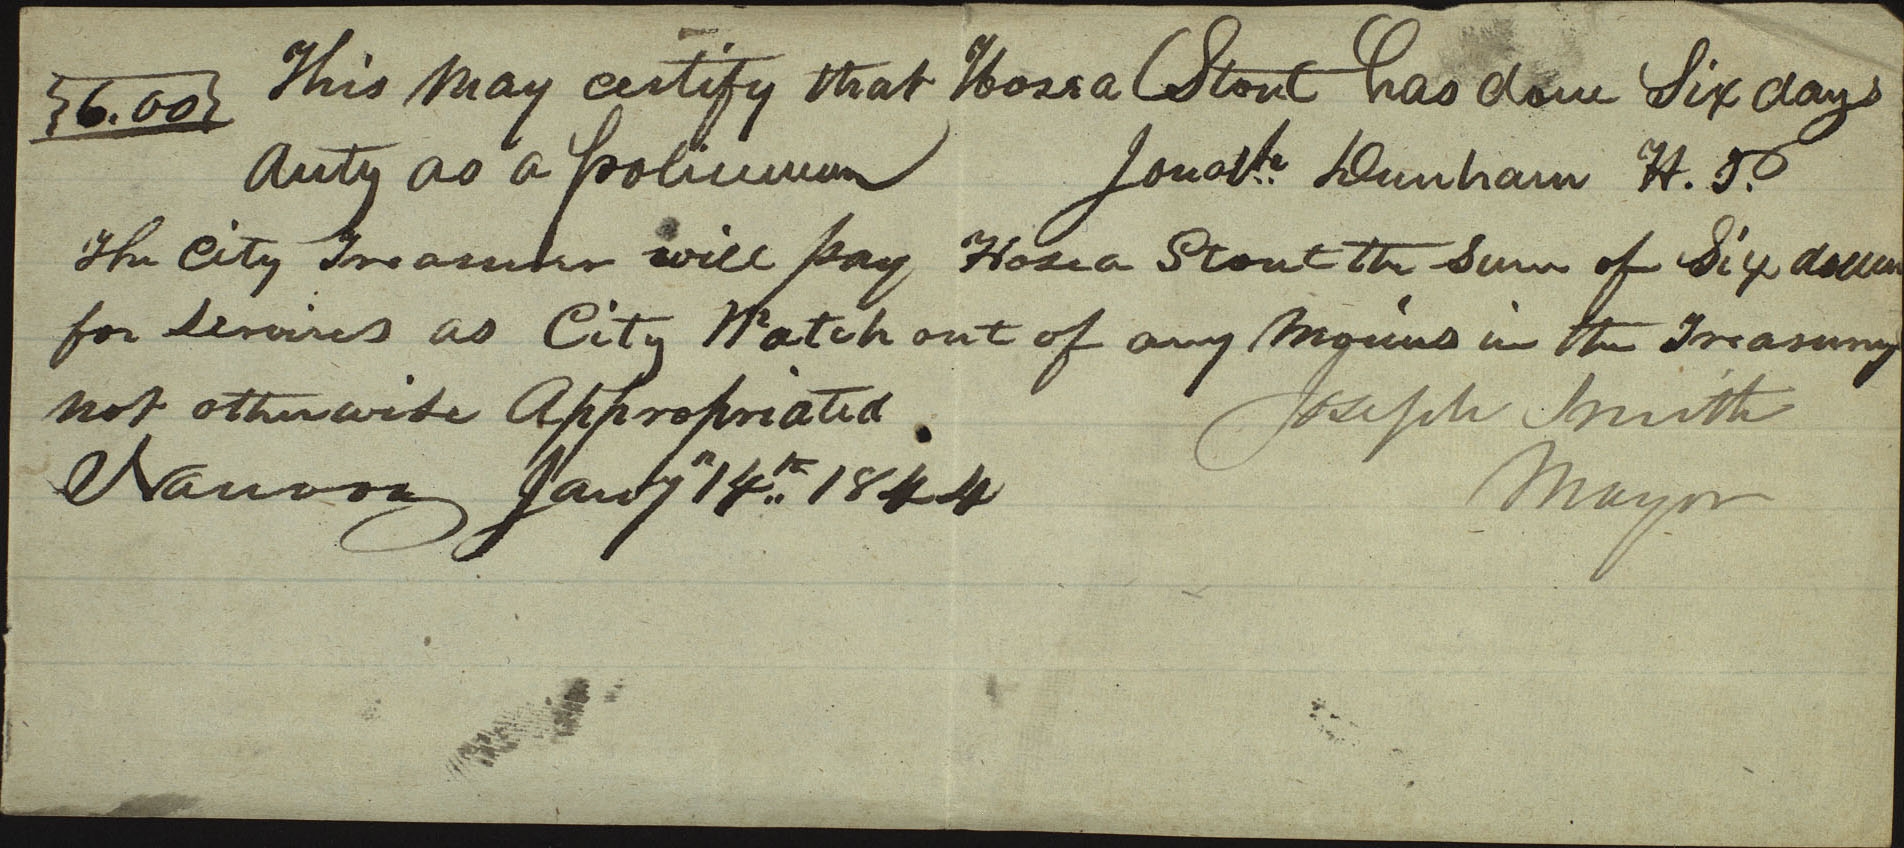 {6.00} This may certify that Hosea Stout has done Six days
duty as a policeman Jonatn Dunham H. P.
The City Treasurer will pay Hosea Stout the Sum of Six dollars
for Services as City Watch out of any Monies in the Treasury
not otherwise Appropriated. Joseph Smith
Nauvoo Jany 14th 1844 Mayor